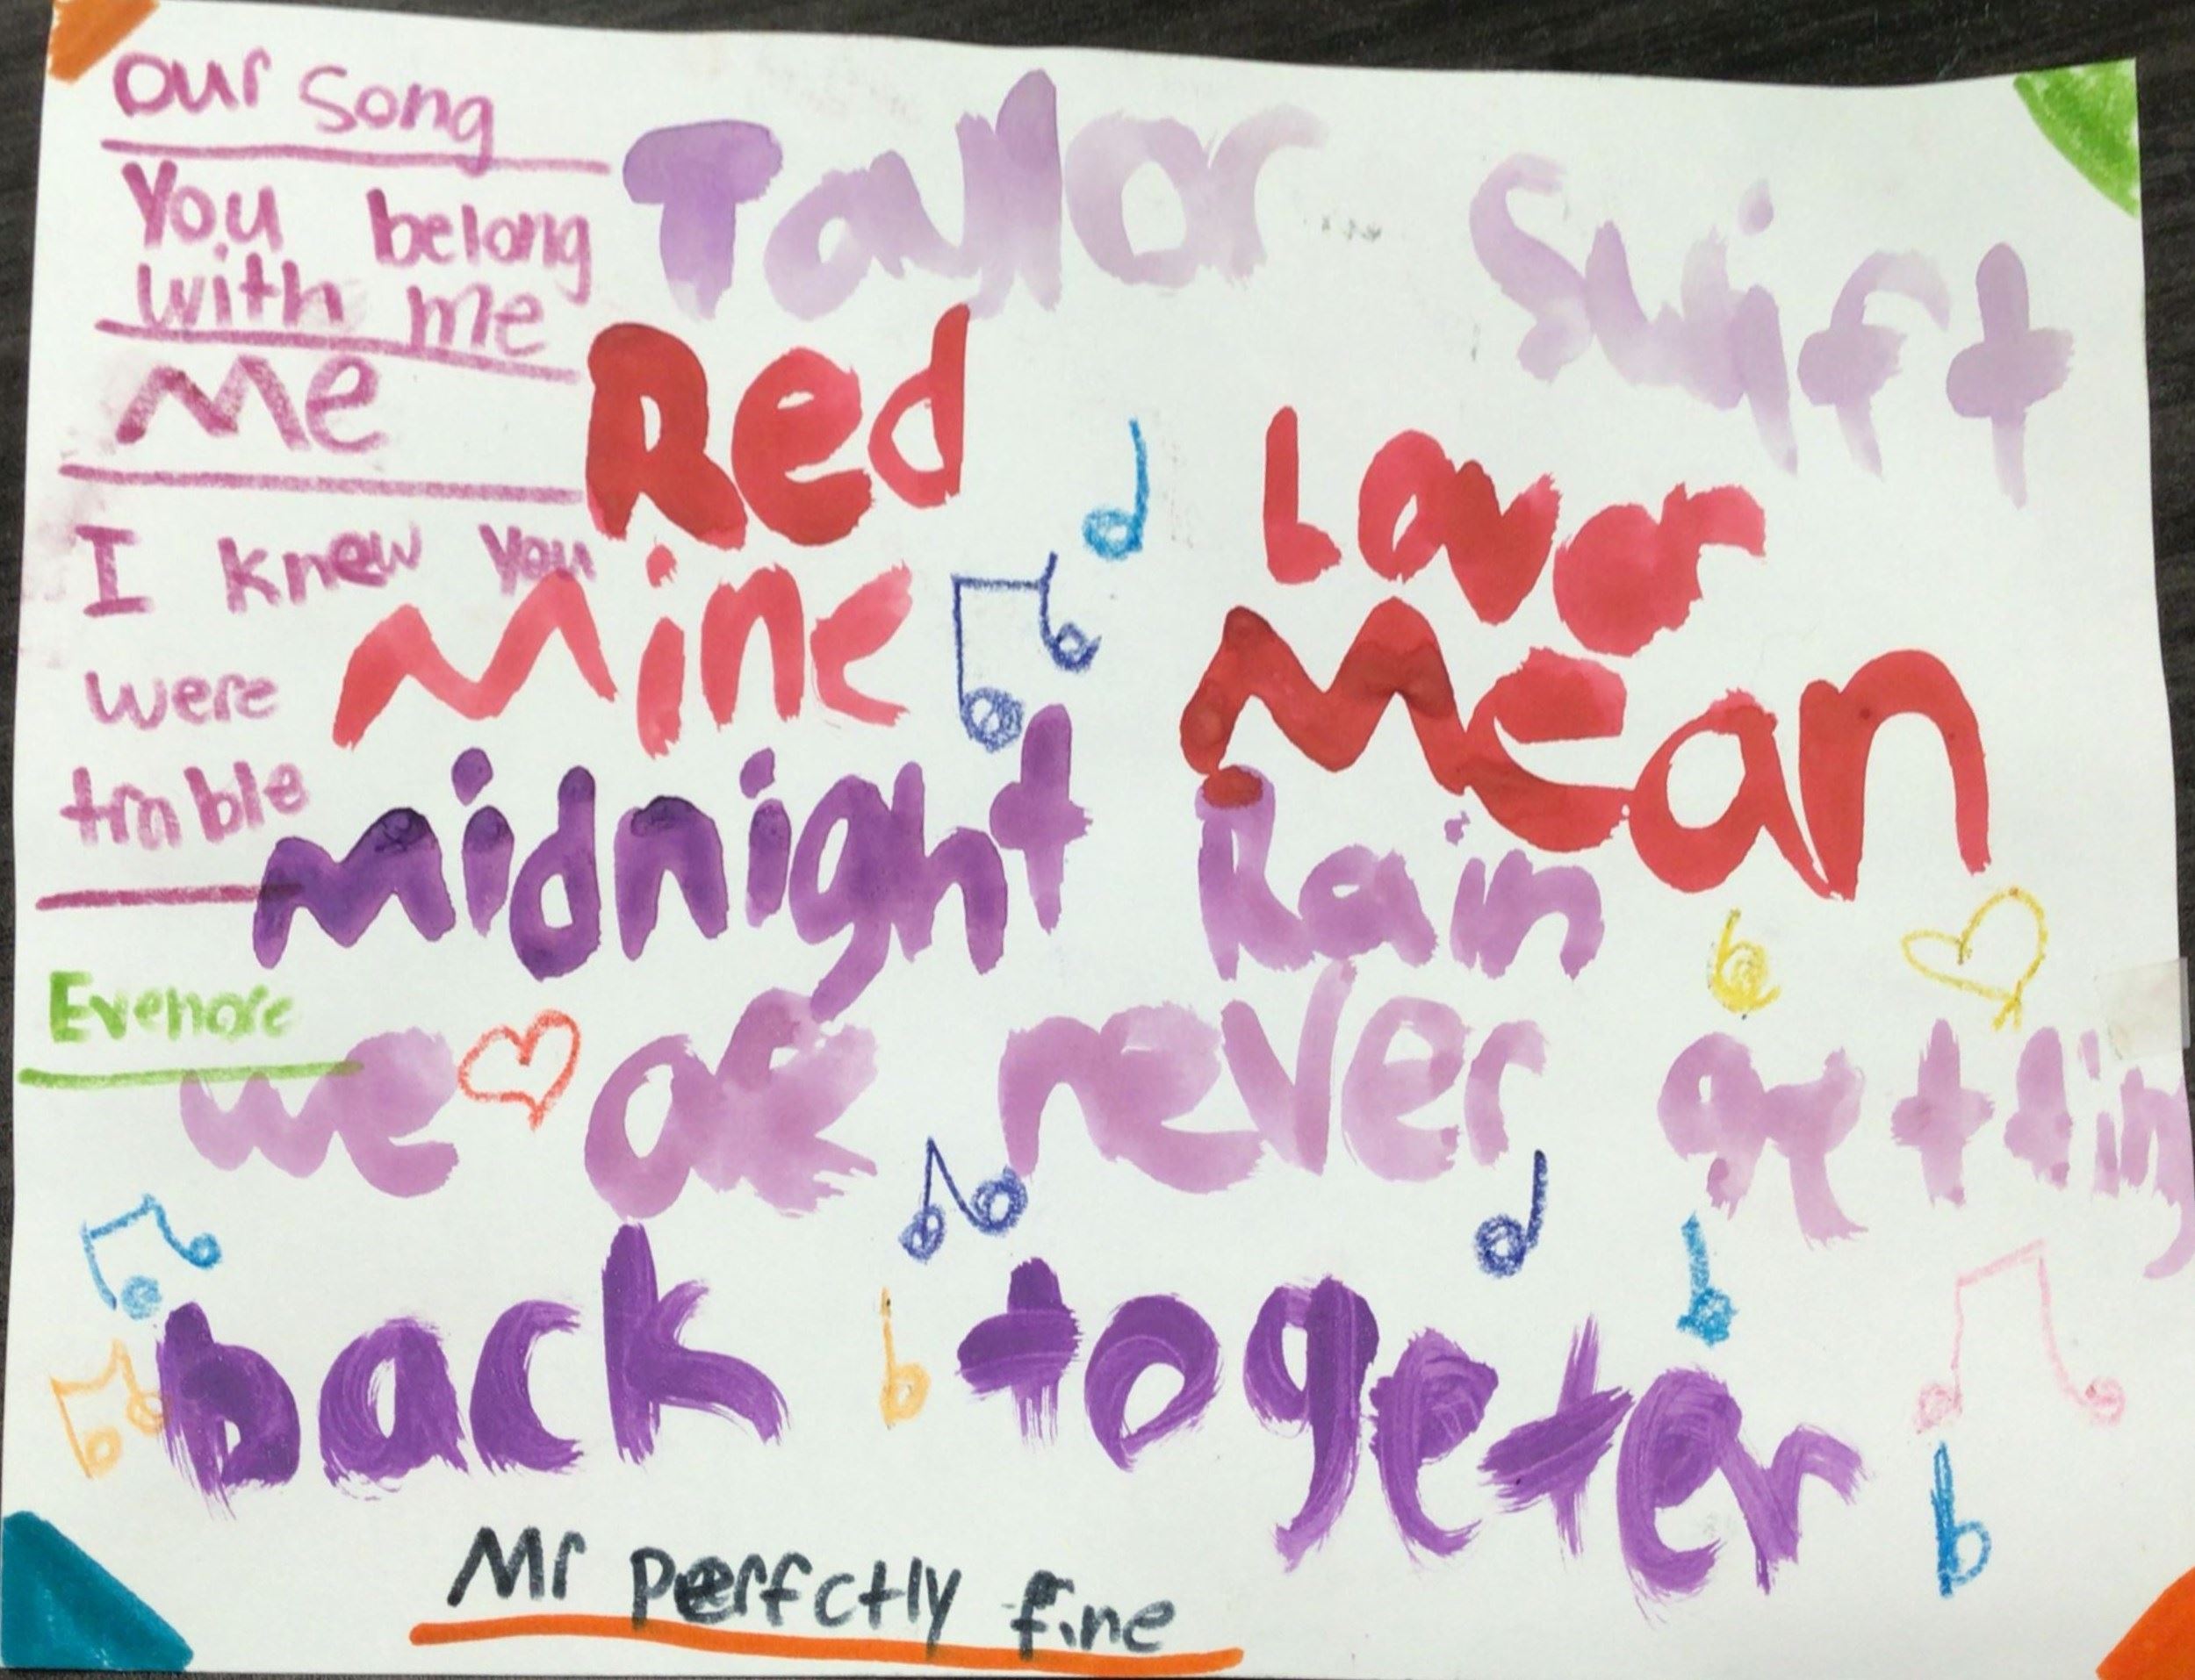 our song
You belong
with me
Me
I knew you
were
trouble
Evermore
Taylor Swift
Red
Lover
Mine
Mean
midnight Rain
we are never gettin
back togeter
Mr perfctly fine